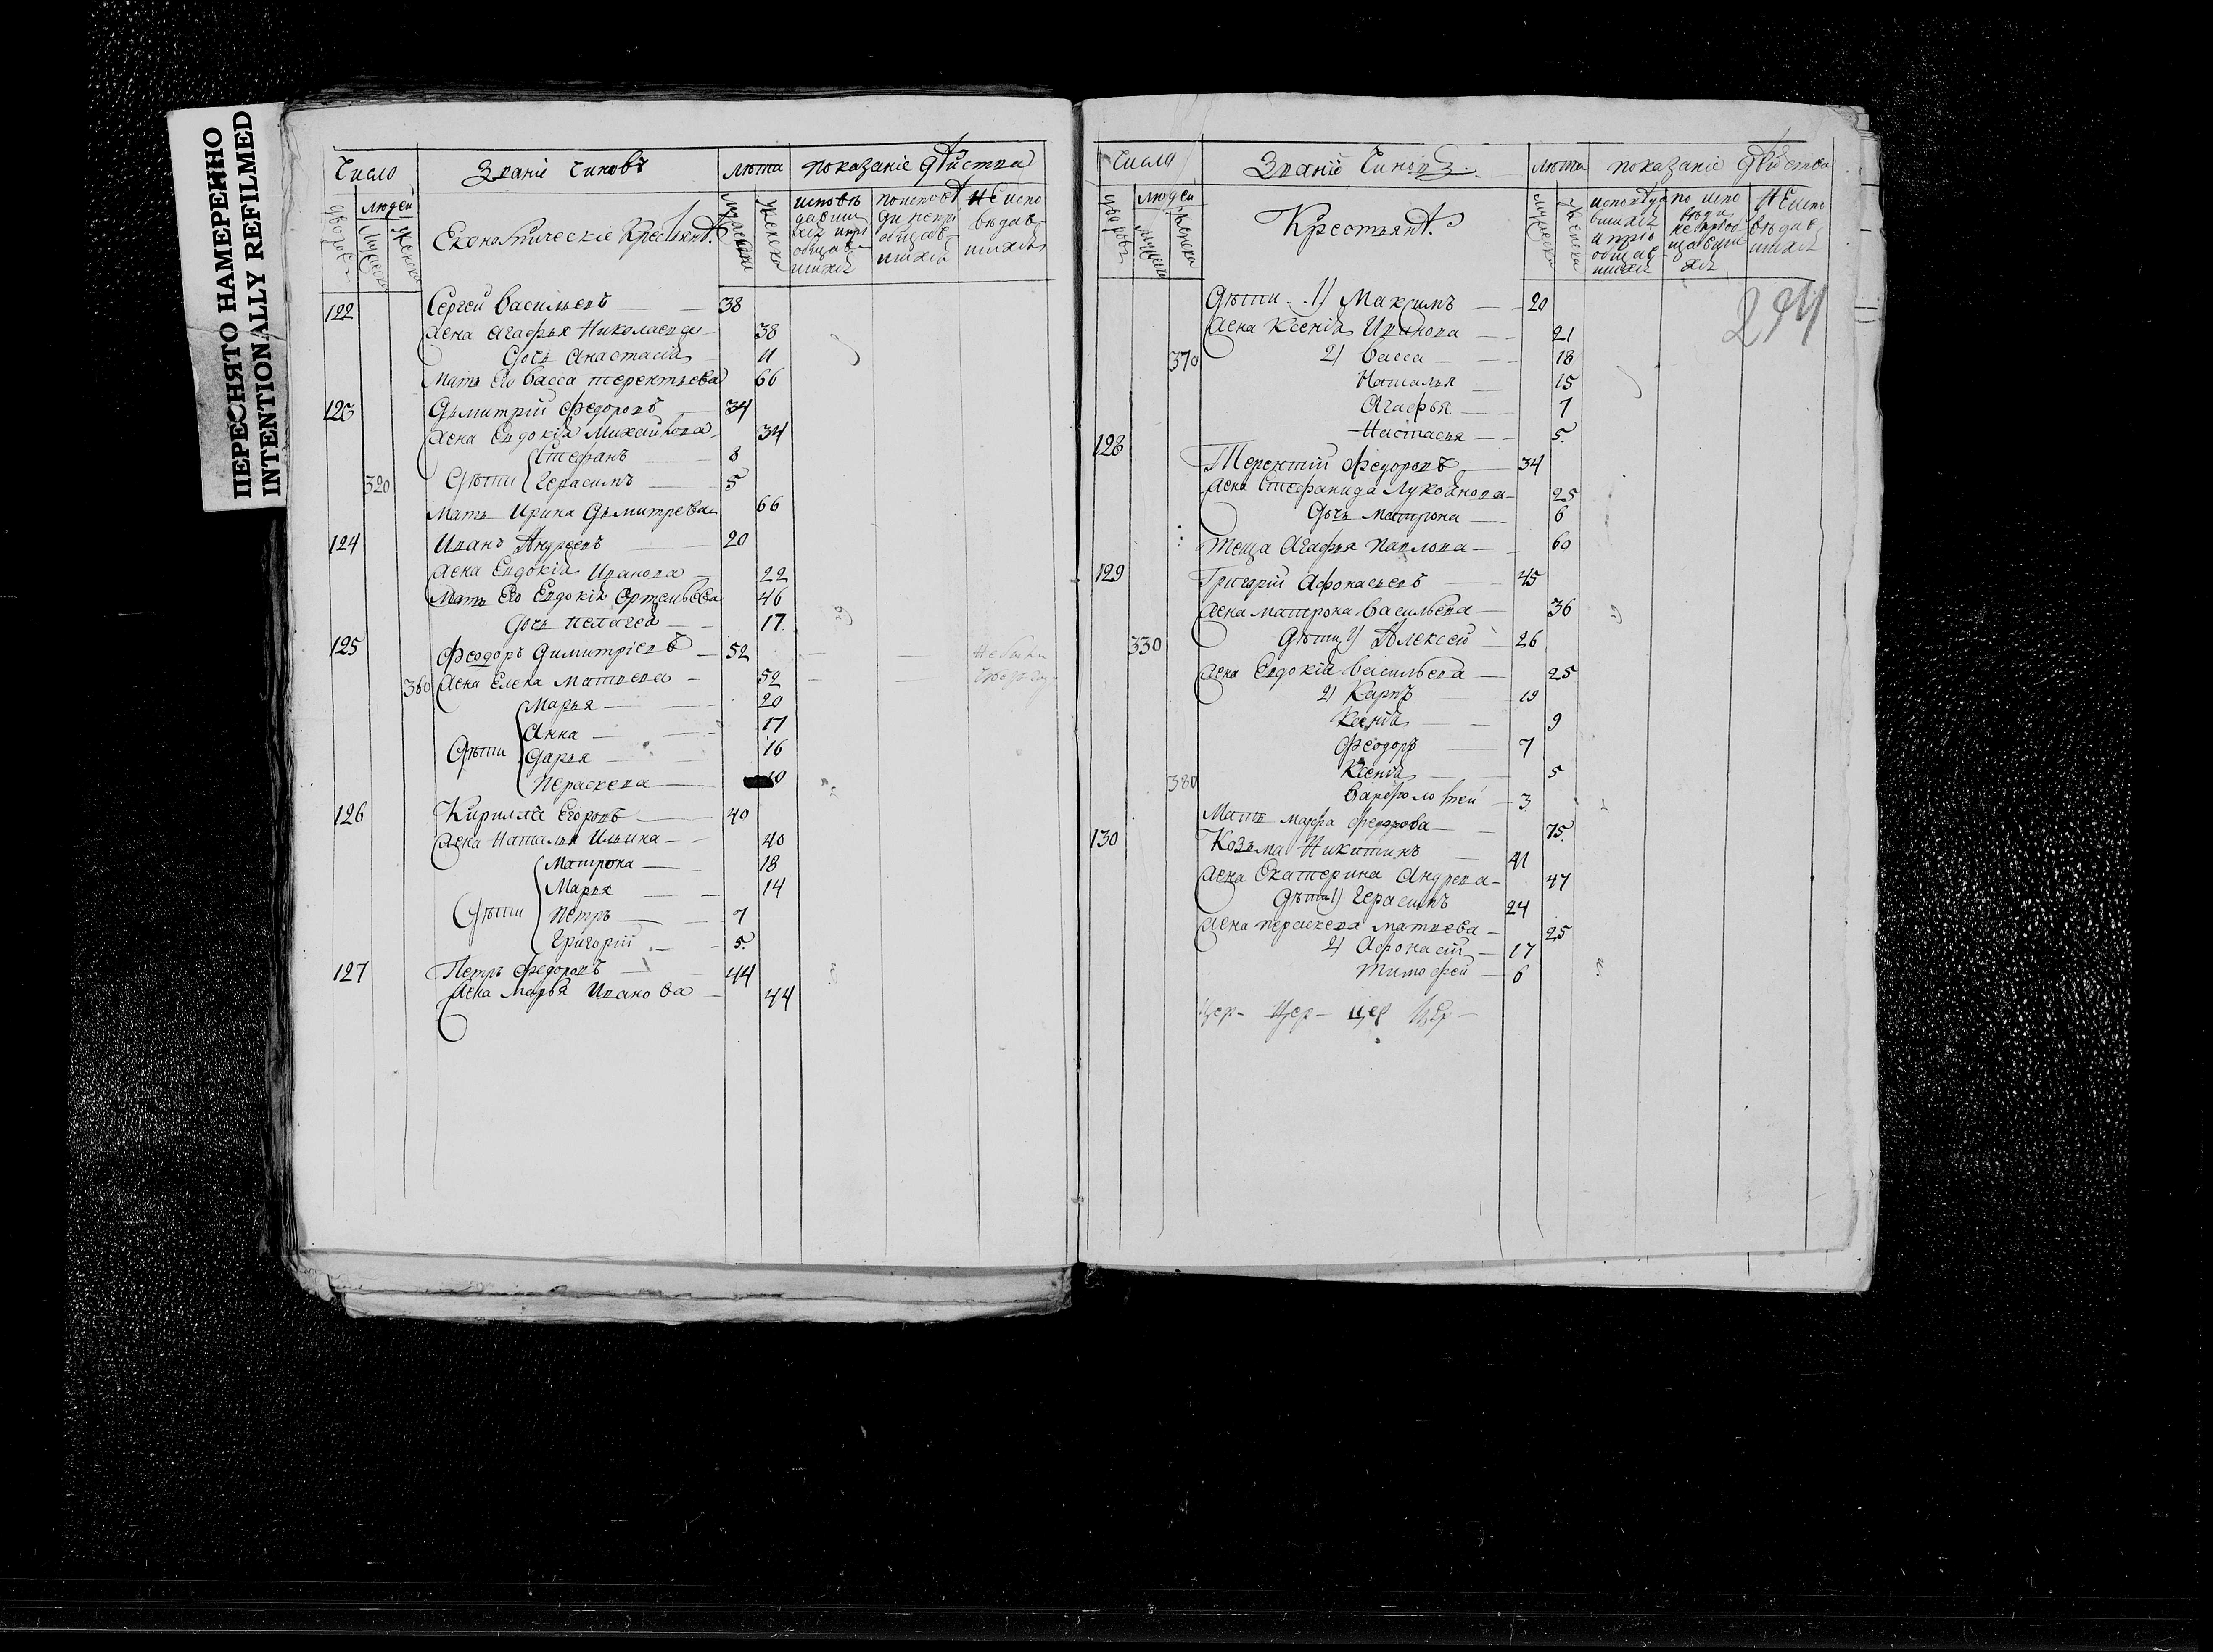 ПЕРЕСНЯТО НАМЕРЕННО
INTENTIONALLY REFILMED
Число Званіе чиновъ лѣта показаніе дѣйства
дворовъ людей мужеска женска Економическіе Крестьянѣ. мужеска женска исповѣдавшихся и пріобщавшихся по исповѣди не пріобщавшихся не исповѣдавшихся
122 Сергей Васильевъ 38
Жена Агафья Николаева 38
Дочь Анастасія 11
Мать Его Васса терентьева 66
123 Дьмитрій Федоровъ 34
Жена Евдокія Михайлова 34
Стефанъ 8
320 Дѣти Герасимъ 5
Мать Ирина Дьмитрева 66
124 Иванъ Андреевъ 20
Жена Евдокія Иванова 22
Мать Его Евдокія Ортемьева 46
Дочь пелагея 17
125 Феодоръ Димитріевъ 52
360 Жена Елена Матвева 52
Марья 20
Анна 17
Дѣти Дарья 16
Пераскева 10
126 Кирилла Егоровъ 40
Жена Наталья Ильина 40
Матрона 18
Марья 14
Дѣти Петръ 7
Григорій 5
127 Петръ Федоровъ 44
Жена Марья Иванова 44
Числа Званіе Чиновъ лѣта показаніе дѣйства
дворовъ людей мужеска женска Крестьянѣ. мужеска женска
294
Дѣти 1) Максимъ 20
Жена Ксенія Иванова 21
370 2) Васса 18
Наталья 15
Агафья 7
Настасья 5
128 Терентій Федоровъ 34
Жена Стефанида Лукоянова 25
Дочь матрона 6
Теща Агафья Павлова 60
129 Григорій Афонасьевъ 45
Жена матрона Васильева 36
330 Дѣти 1) Алексей 26
Жена Евдокія Васильева 25
2) Карпъ 19
Ксенія 9
Феодоръ 7
380 Ксенія 5
Варфоломей 3
Мать Марфа Федорова 75
130 Козьма Никитинъ 41
Жена Екатерина Андрева 47
Дѣти 1) Герасимъ 24
Жена пераскева матвева 25
2) Афонасій 17
Тимофей 6
Цер- Цер- Цер Цер-